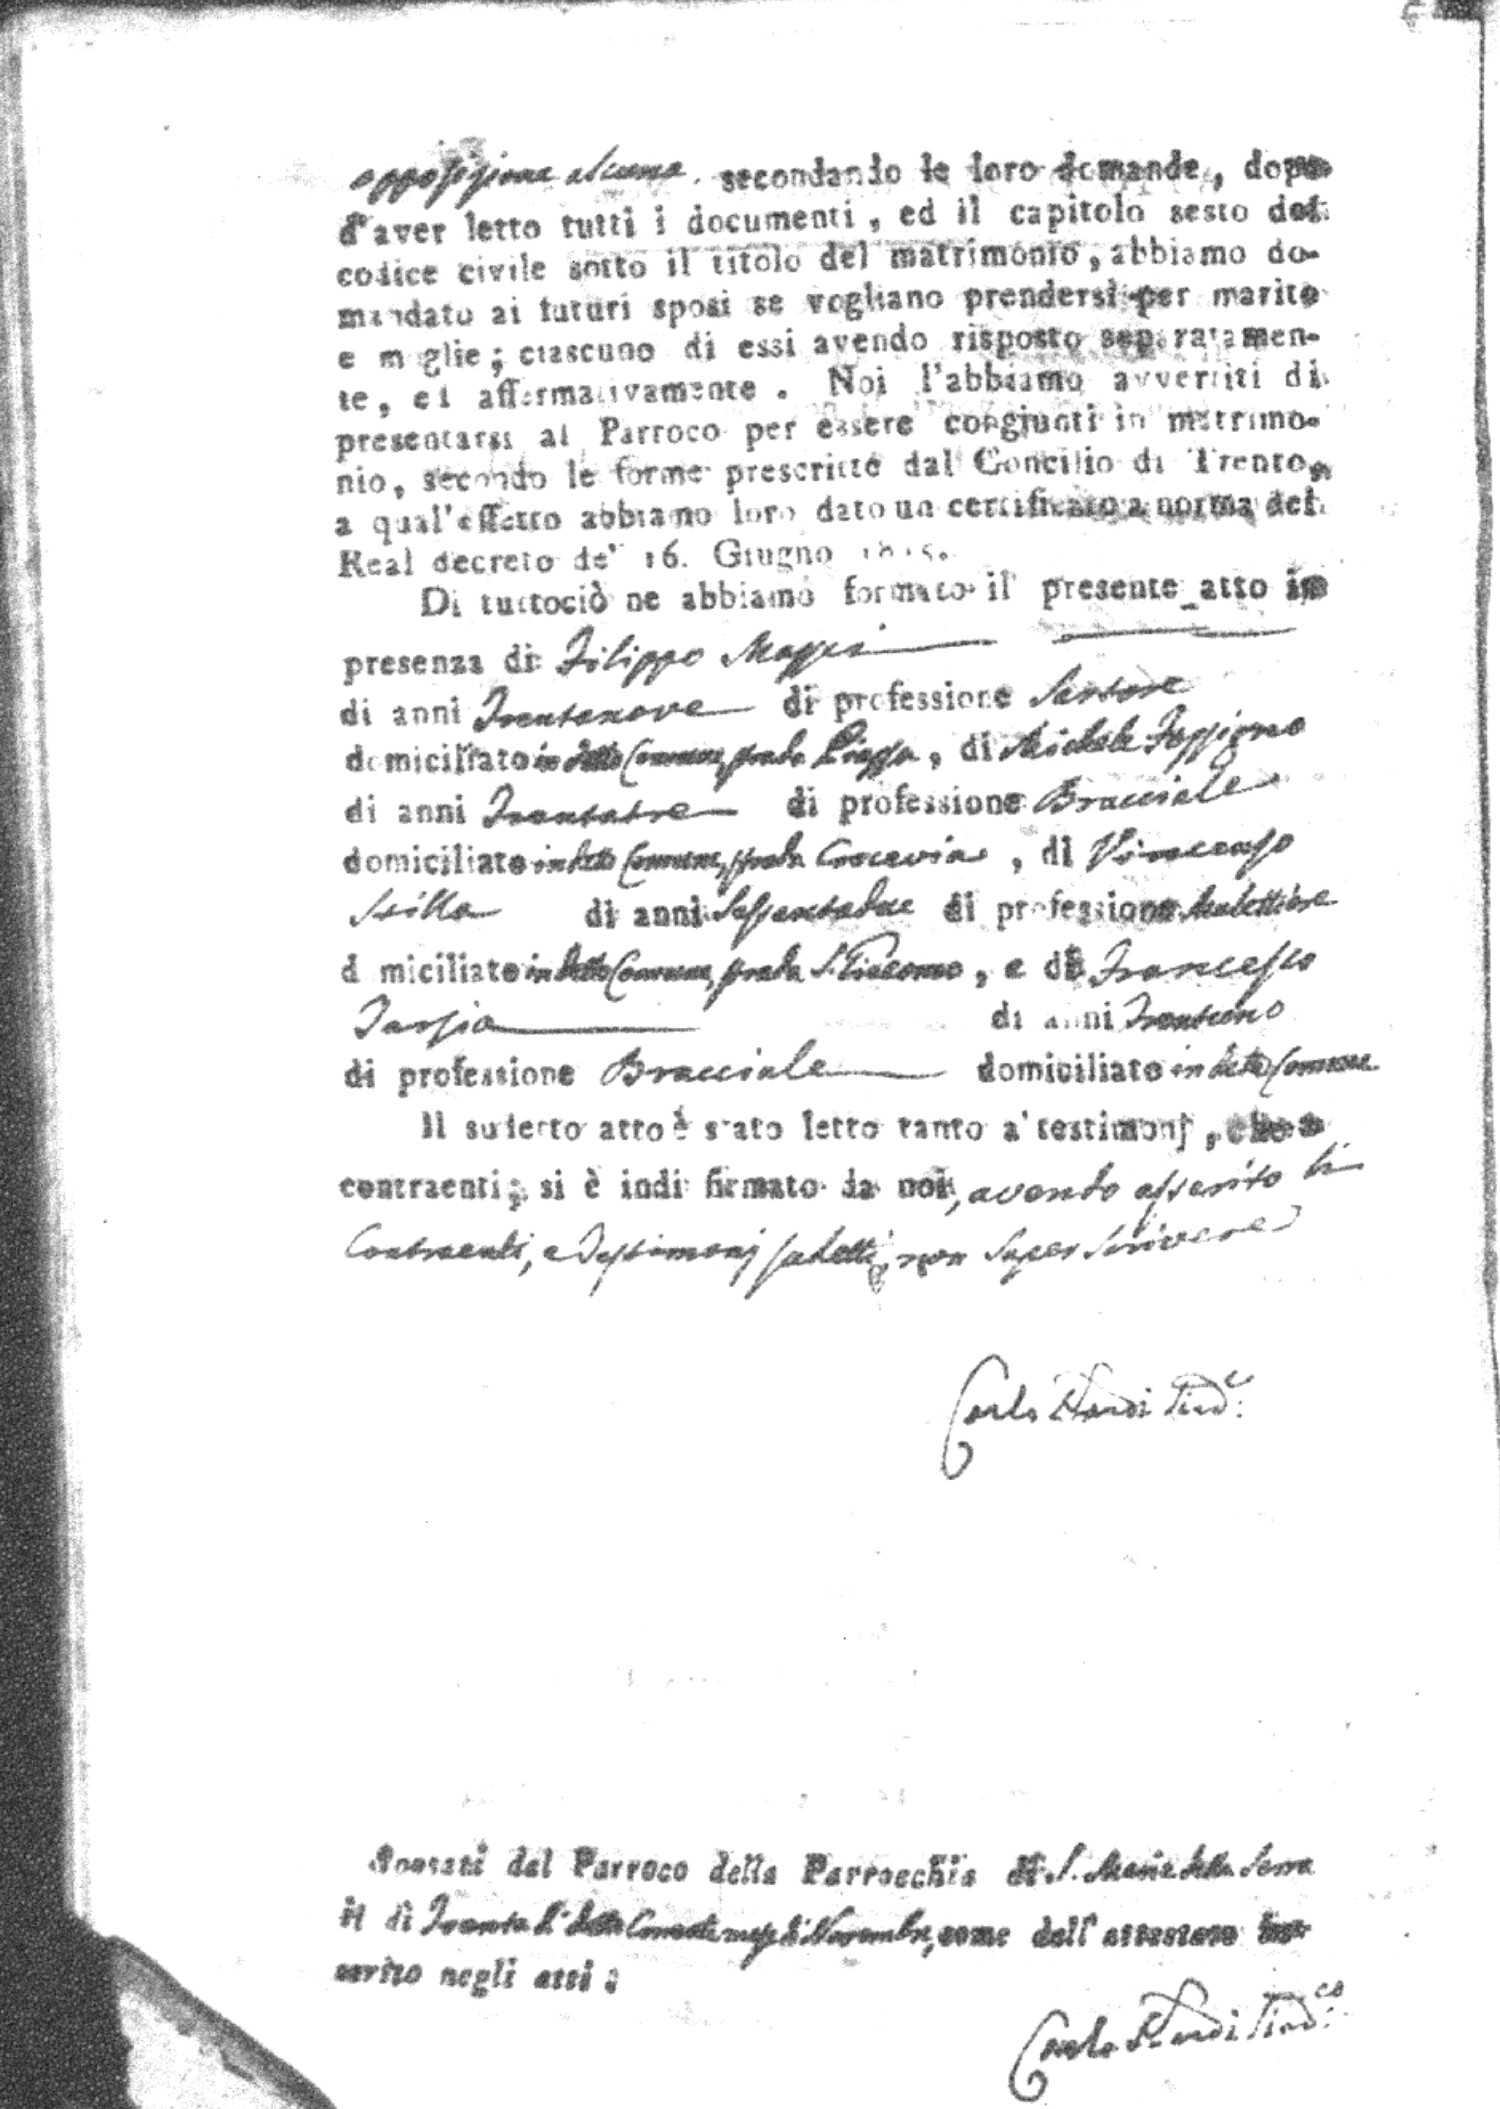 opposizione alcuna, secondando le loro domande, dopo
d'aver letto tutti i documenti, ed il capitolo sesto del
codice civile sotto il titolo del matrimonio, abbiamo do-
mandato ai futuri sposi se vogliano prendersi per marito
e moglie; ciascuno di essi avendo risposto separatamen-
te, ed affermativamente. Noi l'abbiamo avvertiti di
presentarsi al Parroco per essere congiunti in matrimo-
nio, secondo le forme prescritte dal Concilio di Trento,
a qual'effetto abbiamo loro dato un certificato a norma del
Real decreto de' 16. Giugno 1815.
Di tuttociò ne abbiamo formato il presente atto in
presenza di Filippo
di anni Trentanove di professione Sartore
domiciliato in detto Comune, strada Piazza, di Michele
di anni Trentatre di professione Bracciale
domiciliato in detto Comune, strada Crocevia, di Vincenzo
Stilla di anni Sessantadue di professione Mulettiere
domiciliato in detto Comune, strada S. Giacomo, e di Francesco
Tarsia di anni Trentuno
di professione Bracciale domiciliato in detto Comune
Il sudetto atto è stato letto tanto a' testimonj, che a
contraenti; si è indi firmato da noi, avendo asserito li
Contraenti, e Testimonj sudetti, non saper scrivere
Carlo
Sposati dal Parroco della Parrocchia di S. Maria della Serra
il dì Trenta di detto Corrente mese di Novembre, come dall'attestato ins-
erito negli atti.
Carlo